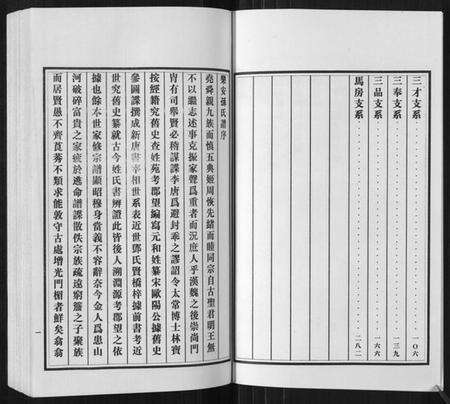 三才支系 ........ 一〇六
三奉支系 ........ 一三九
三品支系 ........ 一六六
馬房支系 ........ 二八二
樂安孫氏譜序
堯舜親九族而慎五典姬周恢先緒而睦同宗自古聖君明王無
不以繼志述事克振家聲爲重者而況庶人乎漢魏之後崇尚門
胄有司舉賢必稽謀諜李唐爲避封乖之謬詔令太常博士林寶
按經籍究舊史查姓苑考郡望編寫元和姓纂宋歐陽公據舊史
參圖諜撰成新唐書宰相世系表近世鄧氏賢橋梓據前書考近
世究舊史纂就古今姓氏書辨證此皆後人溯淵源考郡望之依
據也餘本世家修宗譜顯昭穆身當義不容辭奈今金人爲患山
河破碎富貴之家疲於逃命譜諜散佚宗族疏遠窮簷之子聚族
而居賢愚不齊莨莠不類求能敦守古處增光門楣者鮮矣翕翕
一